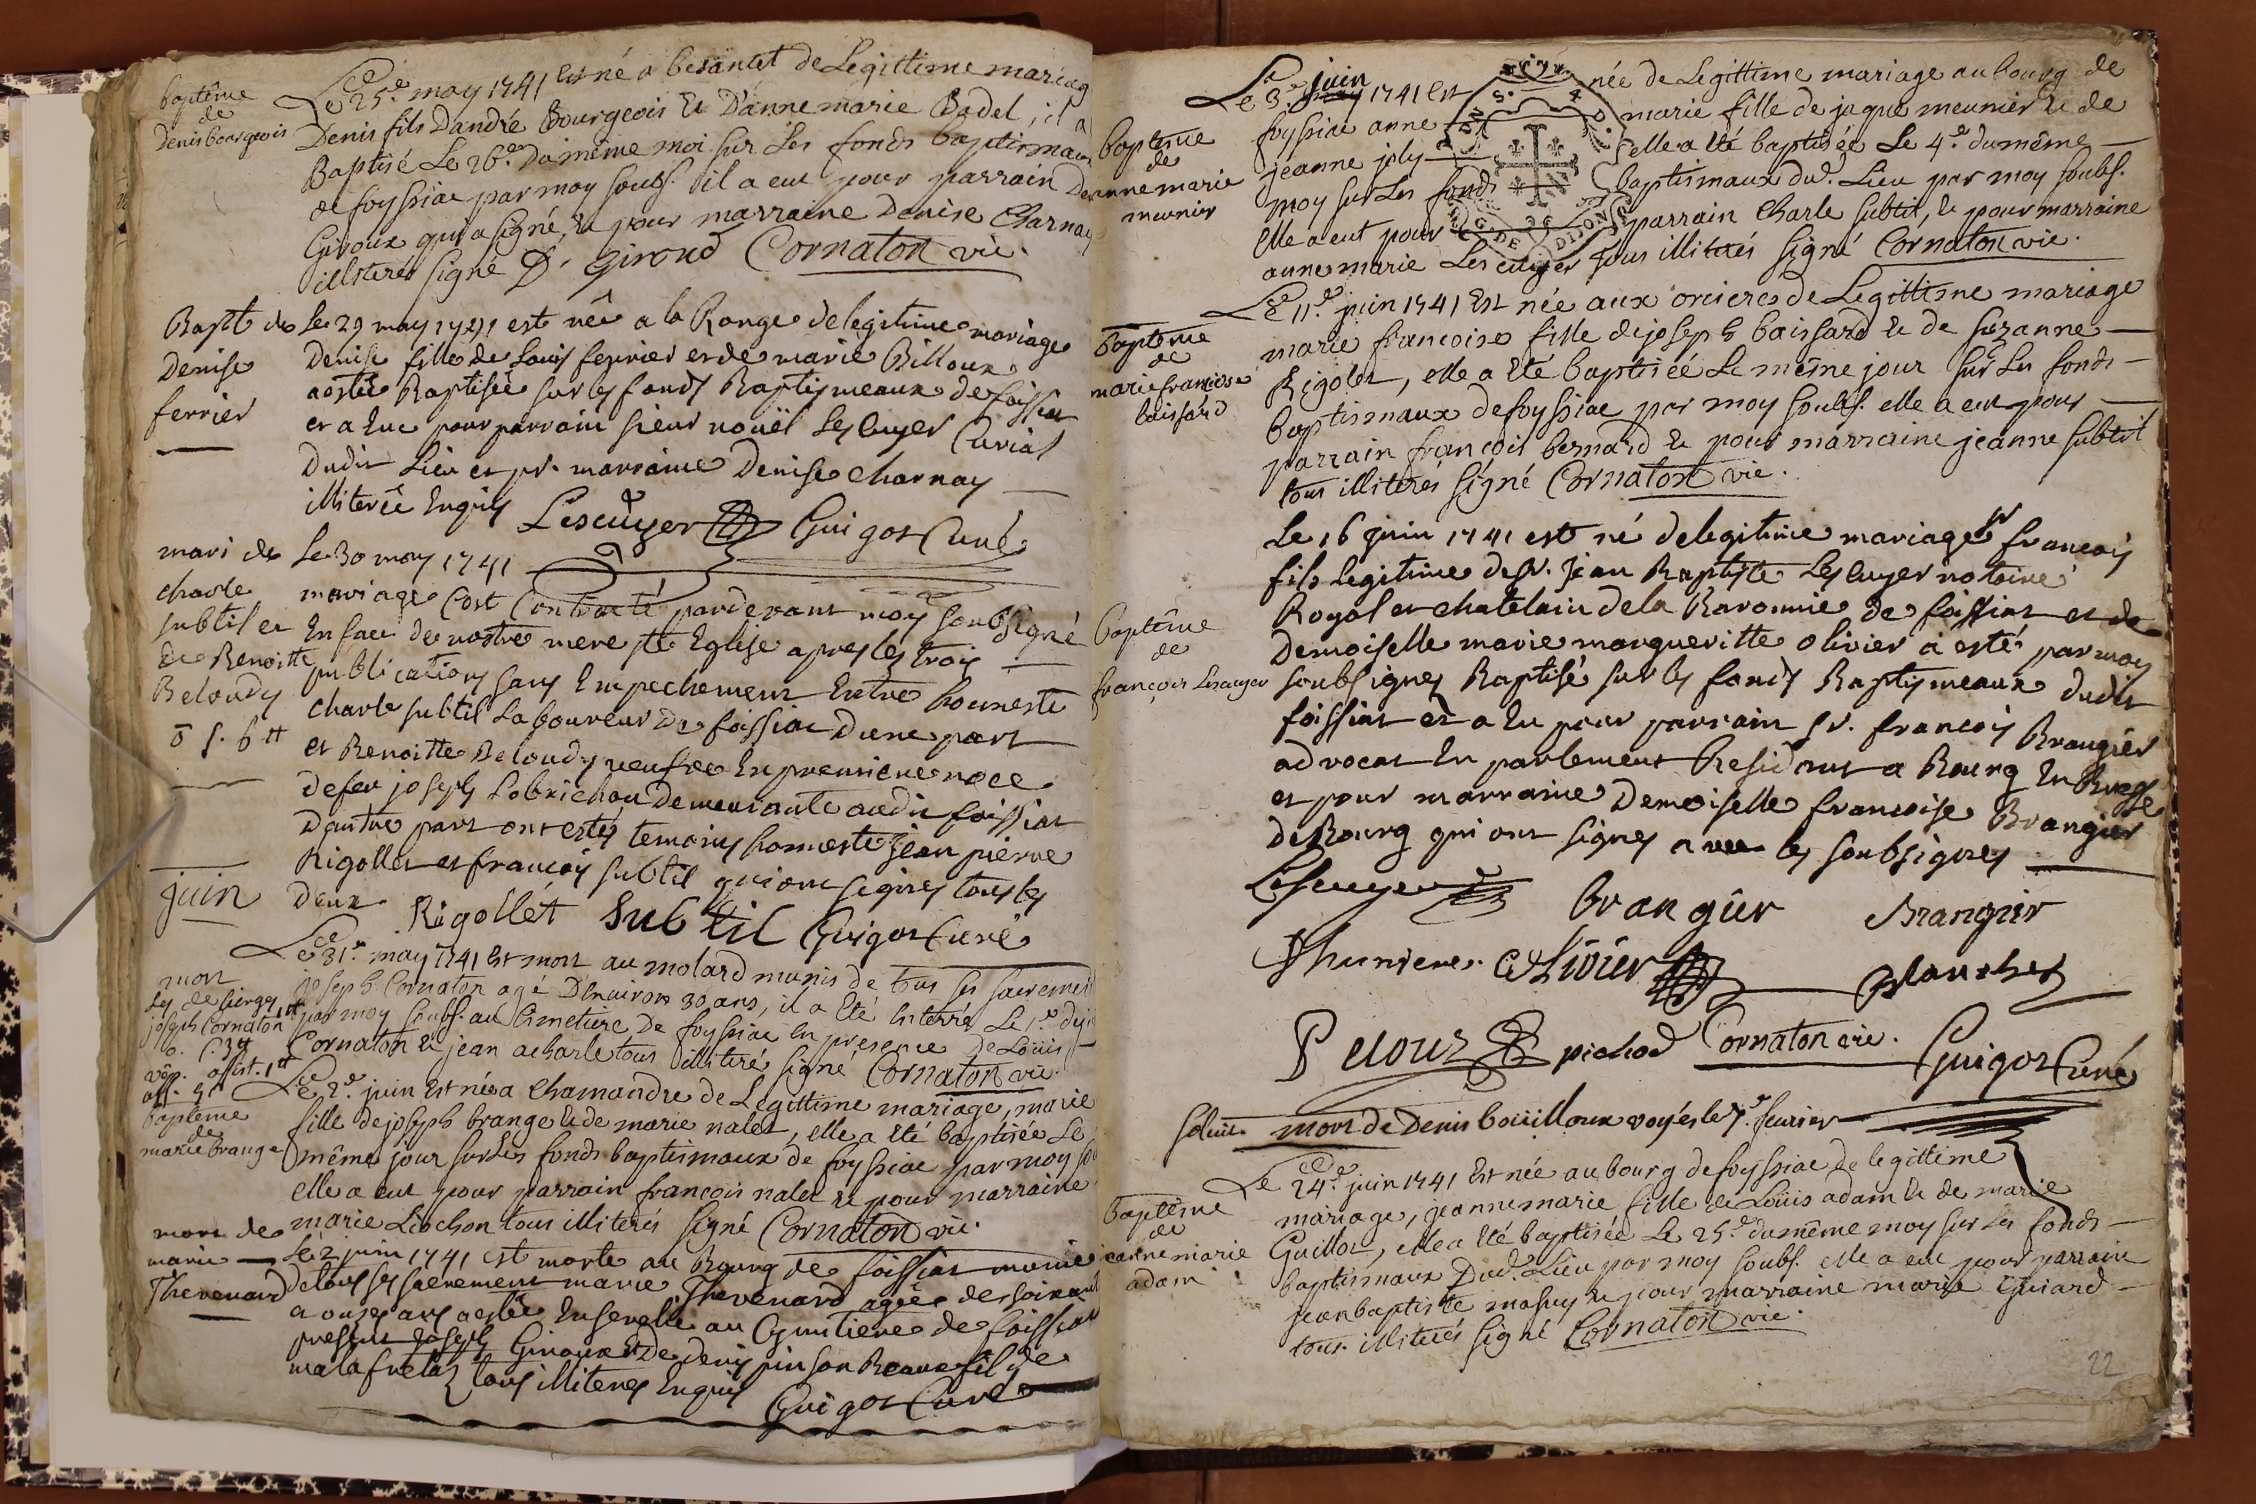 baptême
de
Denis bourgeois
Le 25.e may 1741 Est né a besantet de Legittime mariag
Denis fils Dandré Bourgeois Et D'anne marie Badel, il a
Baptisé Le 26.e Du même moi sur Les fonds baptismaux
de foyssiac par moy soubs. il a eut pour parrain Den
Giroux qui a signé, Et pour marraine Denise Charnay
illiterés signé D. Giroud Cornaton vic.
Bapt de
Denise
ferrier
Le 29 may 1741 est née a la Range de legitime mariage
Denise fille de Louis ferrier et de marie Billoux
a estée Baptisée sur les fonds Baptismeaux de foissiat
et a Eue pour parrain sieur nouël Lescuyer Curial
Dudit Lieu et pr. marraine Denise Charnay
illiterée Enquis Lescuyer Guigot Curé
mari de
charle
subtil et
de Benoitte
Beloudy
Le 30 may 1741
mariage Cest Contracté pardevant moy soubsigné
En face de nostre mere ste Eglise apres les trois
publications sans Empechement Entre honneste
charle subtil Laboureur De foissiac Dune part
et Benoitte Beloudy veufve En premiere noce
de feu joseph Lobrichon Demeurante audit foissiat
Dautre part ont estés temoins honneste jean pierre
Rigollet et francois subtil qui ont signes tous les
Deux Rigollét Subtil Guigot Curé
juin
Le 31.e may 1741 Est mort au molard munis de tous ses sacremen
joseph Cornaton agé D'Environ 30 ans, il a Eté Enterré Le 1.e Du
par moy soubs. au Cimetiere De foyssiac En presence De Loüis
Cornaton Et jean acharle tous illiterés signé Cornaton vic.
mort
joseph Cornaton
baptême
de
marie brange
Le 2.e juin Est née a Chamandre de Legittime mariage, marie
fille de joseph brange Et de marie nalet, elle a Eté baptisée Le
même jour sur Les fonds baptismaux de foyssiac par moy so
elle a eut pour parrain francois nalet Et pour marraine
marie Liochon tous illiterés signé Cornaton vic.
mort de
marie
Thevenard
Le 2 juin 1741 est morte au Bourg de foissiat munie
de tous ses sacrement marie Thevenard agée de soixant
a onzes ans a estée Ensevelie au Cymtiere de foissiat
present joseph Giroux et De denis pinson Beaux fils de
malafretaz tous illiteres Enquis Guigot Curé
Baptême
de
anne marie
meunier
Le 3.e juin 1741 Est née de Legittime mariage au bourg de
foyssiac anne marie fille de jaque meunier Et de
jeanne joly elle a Eté baptisée Le 4.e du même
moy sur Les fonds baptismaux dud. Lieu par moy soubs.
Elle a eut pour parrain Charle subtil, Et pour marraine
anne marie Lescuyer tous illiterés signé Cornaton vic.
baptême
de
marie françoise
boissard
Le 11.e juin 1741 Est née aux orcieres de Legittime mariage
marie francoise fille de joseph boissard Et de suzanne
Rigolet, elle a Eté baptisée Le même jour sur Les fonds
baptismaux de foyssiac par moy soubs. elle a eut pour
parrain françois bernard Et pour marraine jeanne subtil
tous illiterés signé Cornaton vic.
baptême
de
françois Lescuyer
Le 16 juin 1741 est né de legitime mariage sr francois
fils legitime de sr. Jean Baptiste Lescuyer notaire
Royal et chatelain de la Baronnie de foissiat et de
Demoiselle marie margueritte olivier a esté par moy
soubsignes Baptisé sur les fonds Baptismeaux dudit
foissiat et a Eu pour parrain sr. francois Brangier
advocat En parlement Residant a Bourg En Bresse
et pour marraine Demoiselle francoise Brangier
de Bourg qui ont signes avec les soubsignes
Lescuyer brangier Brangier
Thuniere Olivier Blanchet
Peloux pichod Cornaton vic. Guigot Curé
mort de Denis boüilloux voyés le 7.e feurier
baptême
de
jeanne marie
adam
Le 24.e juin 1741 Est née au bourg de foyssiac de legittime
mariage, jeanne marie fille de Loüis adam Et de marie
Guillot, elle a Eté baptisée Le 25.e du même moy sur Les fonds
baptismaux Dud. Lieu par moy soubs. elle a eut pour parrain
jean baptiste mapuy Et pour marraine marie Guiard
tous illiterés signé Cornaton vic.
22